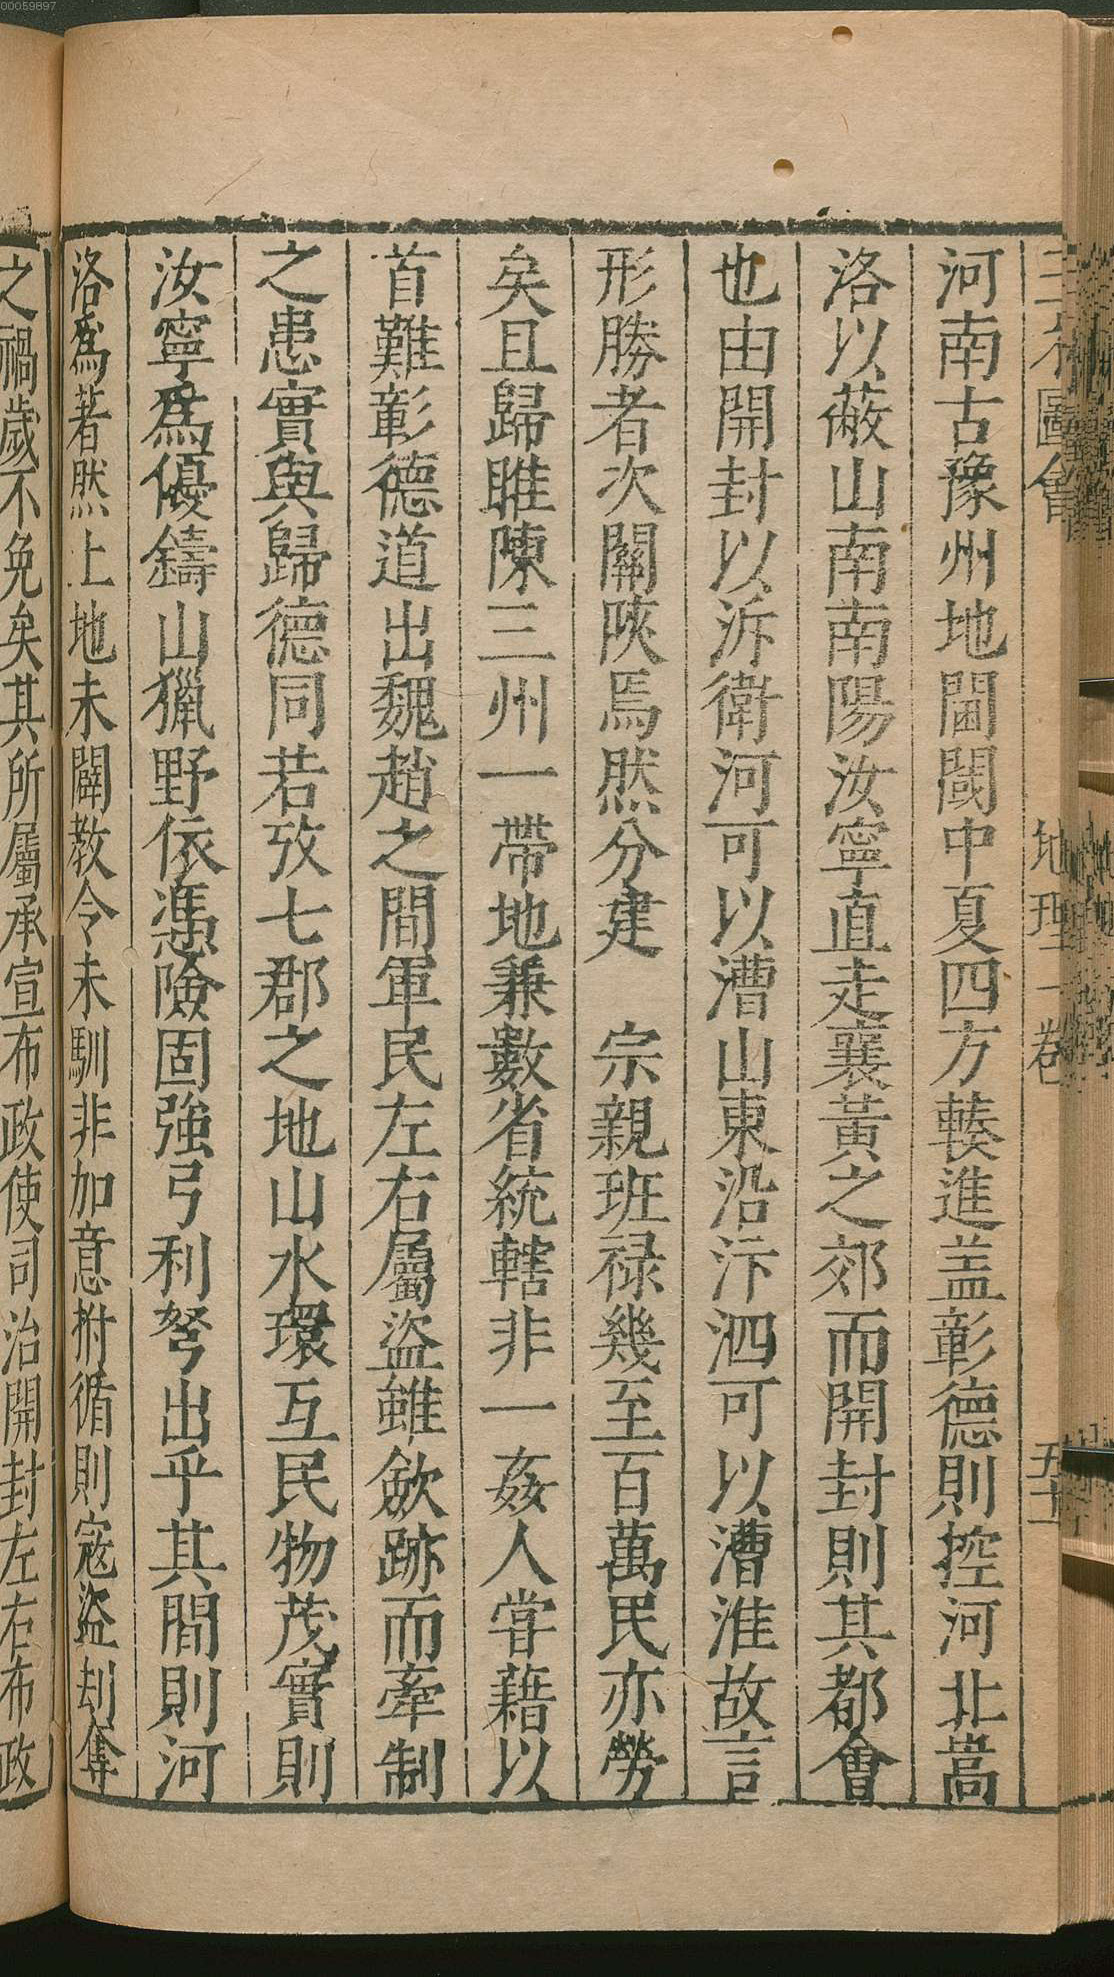 00059897
圖會 地理一卷 五十
河南古豫州地閫閾中夏四方輳進盖彰德則控河北嵩
洛以蔽山南南陽汝寧直走襄黃之郊而開封則其都會
也由開封以泝衛河可以漕山東沿汴泗可以漕淮故言
形勝者次關陝焉然分建 宗親班祿幾至百萬民亦勞
矣且歸睢陳三州一帶地兼數省統轄非一姦人嘗藉以
首難彰德道出魏趙之間軍民左右屬盜雖歛跡而牽制
之患實與歸德同若攷七郡之地山水環互民物茂實則
汝寧爲優鑄山獵野依馮險固強弓利弩出乎其間則河
洛爲著然上地未闢教令未馴非加意拊循則寇盜刦奪
之禍歲不免矣其所屬承宣布政使司治開封左右布政